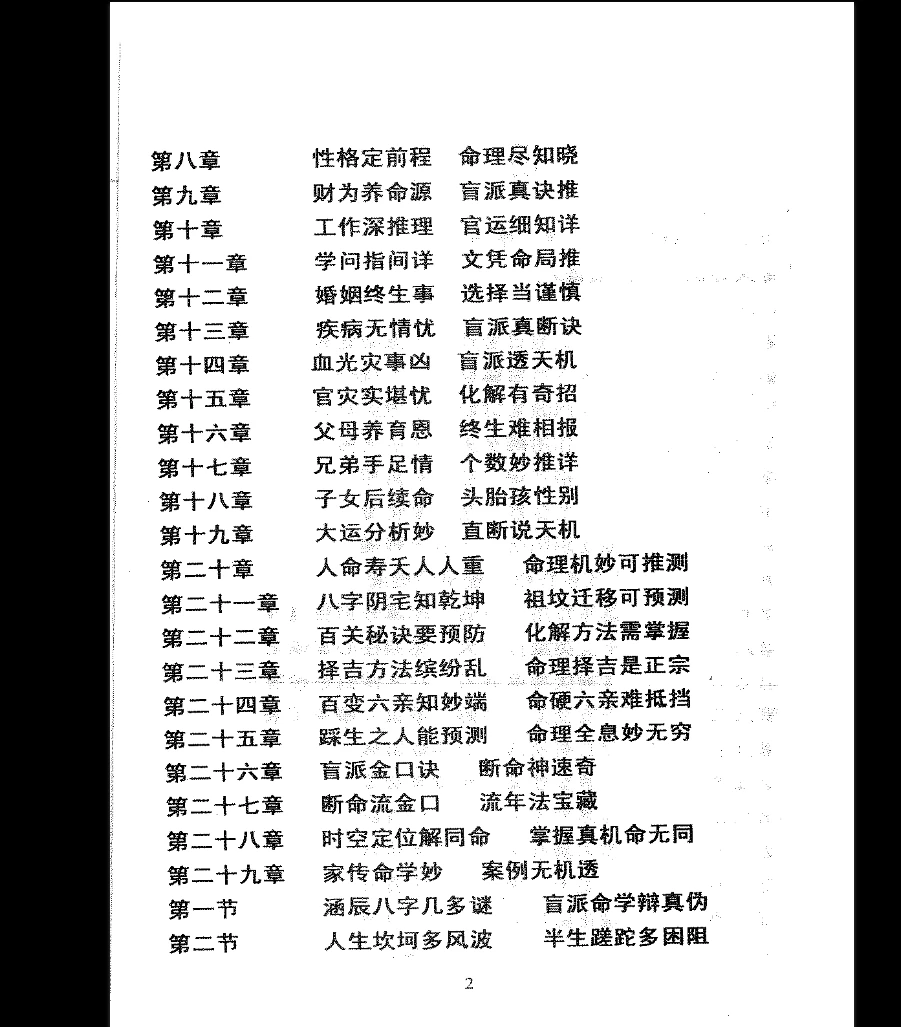 第八章 性格定前程 命理尽知晓
第九章 财为养命源 盲派真诀推
第十章 工作深推理 官运细知详
第十一章 学问指间详 文凭命局推
第十二章 婚姻终生事 选择当谨慎
第十三章 疾病无情忧 盲派真断诀
第十四章 血光灾事凶 盲派透天机
第十五章 官灾实堪忧 化解有奇招
第十六章 父母养育恩 终生难相报
第十七章 兄弟手足情 个数妙推详
第十八章 子女后续命 头胎孩性别
第十九章 大运分析妙 直断说天机
第二十章 人命寿夭人人重 命理机妙可推测
第二十一章 八字阴宅知乾坤 祖坟迁移可预测
第二十二章 百关秘诀要预防 化解方法需掌握
第二十三章 择吉方法缤纷乱 命理择吉是正宗
第二十四章 百变六亲知妙端 命硬六亲难抵挡
第二十五章 踩生之人能预测 命理全息妙无穷
第二十六章 盲派金口诀 断命神速奇
第二十七章 断命流金口 流年法宝藏
第二十八章 时空定位解同命 掌握真机命无同
第二十九章 家传命学妙 案例无机透
第一节 涵辰八字几多谜 盲派命学辩真伪
第二节 人生坎坷多风波 半生蹉跎多困阻
2